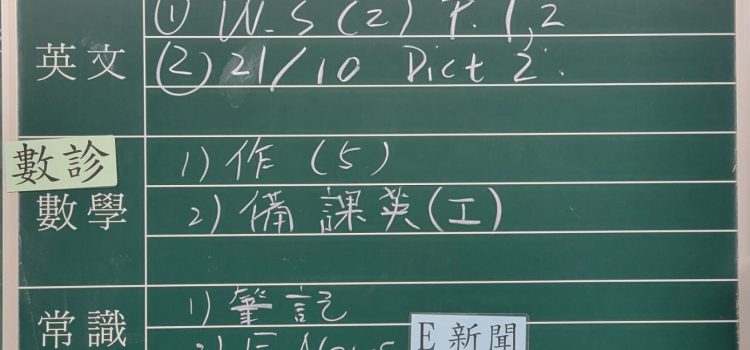 英文
① W.S (2) P.1,2
② 21/10 Dict 2
數診
數學
1) 作 (5)
2) 備課英(工)
常識
1) 筆記
2) E News
E 新聞